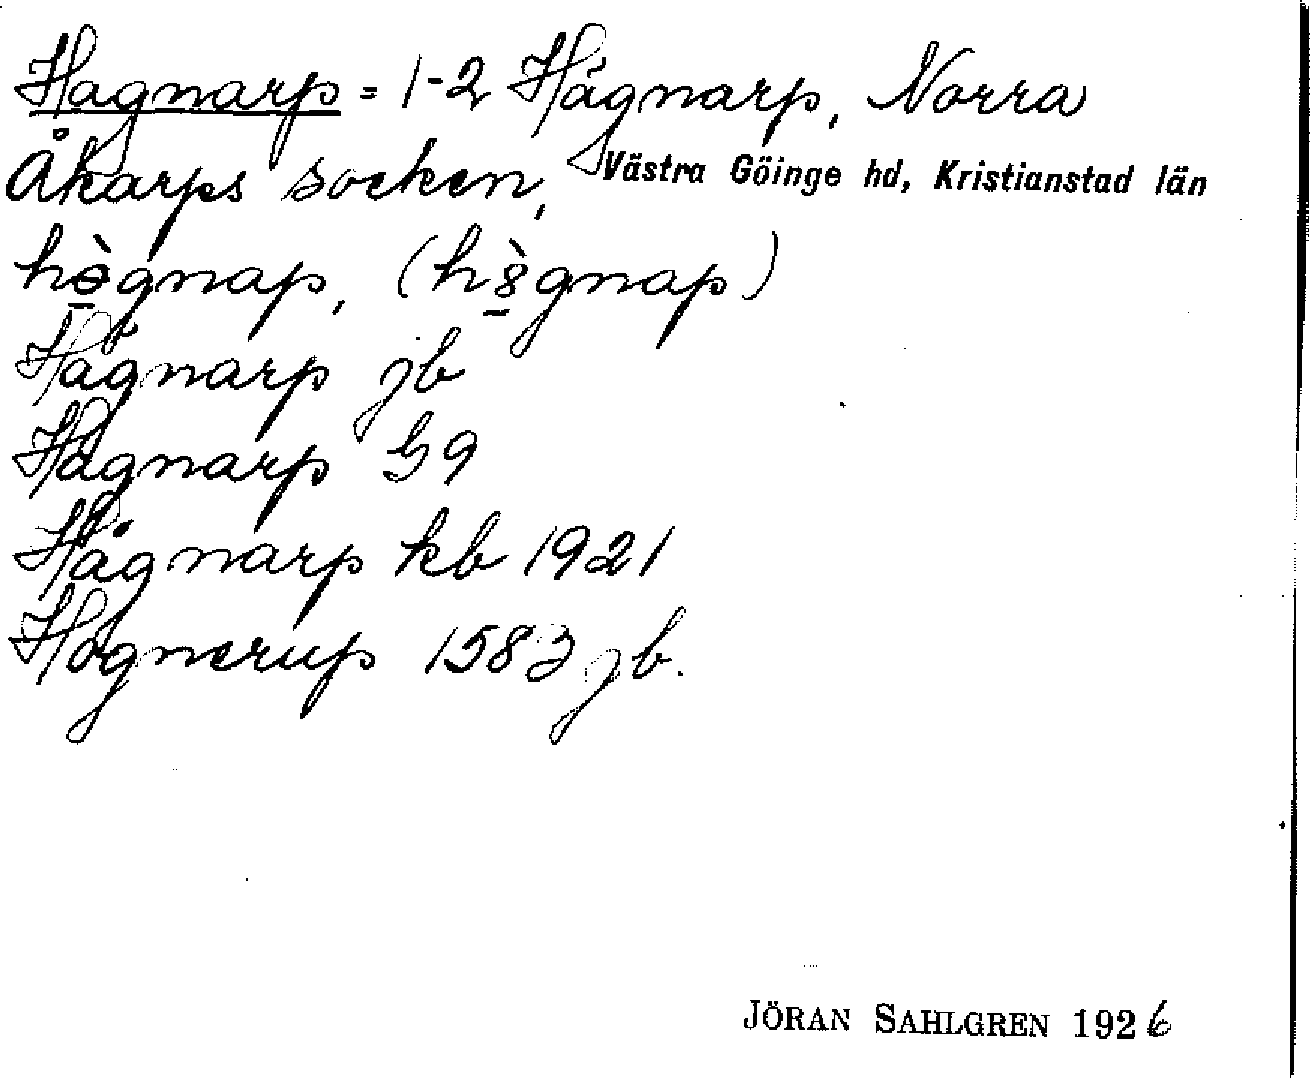 Hagnarp = 1-2 Hägnarp, Norra
Åkarps socken, Västra Göinge hd, Kristianstad län
hògnap, (hs̀gnap)
Hågnarp jb
Hagnarp G9
Hägnarp kb 1921
Hognerup 1583 jb.
JÖRAN SAHLGREN 1926